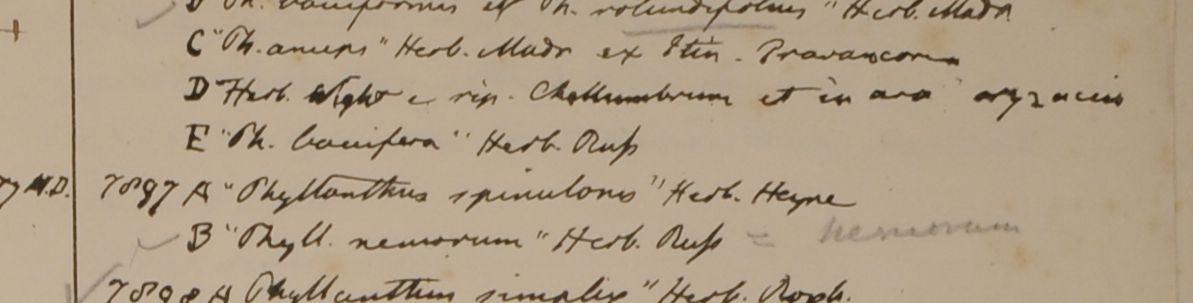 B "Ph. bacciformis et Ph. rotundifolius" Herb. Madr
C "Ph. anceps" Herb. Madr ex Itin. Travancoria
D Herb. Wight e rip. et in ora oryzaceis
E "Ph. baccifera" Herb. Russ
M.D. 7897 A "Phyllanthus spinulosus" Herb. Heyne
B "Phyll. nemorum" Herb. Russ = nemorum
7898 A Phyllanthus simplex" Herb. Roxb.